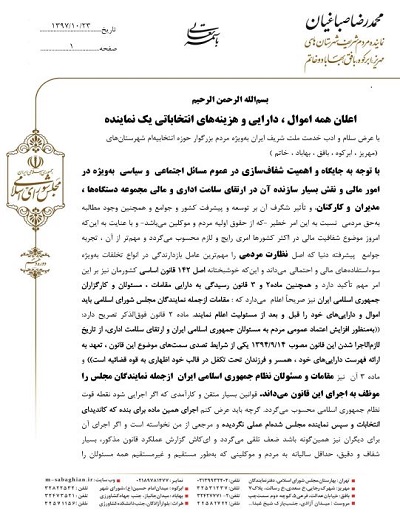 محمدرضا صباغیان
نماینده مردم شریف شهرستان های
مهریز، ابرکوه، بافق، بهاباد و خاتم
باسمه تعالی
تاریخ ۱۳۹۷/۱۰/۲۳
صفحه ۱
مجلس شورای اسلامی
بسم‌الله الرحمن الرحیم
اعلان همه اموال ، دارایی و هزینه‌های انتخاباتی یک نماینده
با عرض سلام و ادب خدمت ملت شریف ایران به‌ویژه مردم بزرگوار حوزه انتخابیه‌ام شهرستان‌های
(مهریز ، ابرکوه ، بافق ، بهاباد ، خاتم )
با توجه به جایگاه و اهمیت شفاف‌سازی در عموم مسائل اجتماعی و سیاسی به‌ویژه در
امور مالی و نقش بسیار سازنده آن در ارتقای سلامت اداری و مالی مجموعه دستگاه‌ها ،
مدیران و کارکنان. و تأثیر شگرف آن بر توسعه و پیشرفت کشور و جوامع و همچنین وجود مطالبه
به‌حق مردمی نسبت به این امر خطیر -که از حقوق اولیه مردم و موکلین می‌باشد- و با عنایت به این‌که
امروز موضوع شفافیت مالی در اکثر کشورها امری رایج و لازم محسوب می‌گردد و مهم‌تر از آن ، تجربه
جوامع پیشرفته دنیا که اصل نظارت مردمی را مهم‌ترین عامل بازدارندگی در انواع تخلفات به‌ویژه
سوءاستفاده‌های مالی و احتمالی می‌داند و این‌که خوشبختانه اصل ۱۴۲ قانون اساسی کشورمان نیز بر این
امر مهم تأکید دارد و همچنین ماده۲ و ۳ قانون رسیدگی به دارایی مقامات ، مسئولان و کارگزاران
جمهوری اسلامی ایران نیز صریحاً اعلام می‌دارد که : مقامات ازجمله نمایندگان مجلس شورای اسلامی باید
اموال و دارایی‌های خود را قبل و بعد از مسئولیت اعلام نمایند. ماده ۲ قانون فوق‌الذکر تصریح دارد:
((به‌منظور افزایش اعتماد عمومی مردم به مسئولان جمهوری اسلامی ایران و ارتقای سلامت اداری، از تاریخ
لازم‌الاجرا شدن این قانون مصوب ۱۳۹۴/۹/۱۴ یکی از شرایط تصدی سمت‌های موضوع این قانون ، تعهد به
ارائه فهرست دارایی‌های خود ، همسر و فرزندان تحت تکفل در قالب خود اظهاری به قوه قضائیه است)) و
ماده ۳ آن نیز مقامات و مسئولان نظام جمهوری اسلامی ایران ازجمله نمایندگان مجلس را
موظف به اجرای این قانون می‌داند. قوانین بسیار متقن و کارآمدی که اگر اجرایی شود نقطه قوت
نظام جمهوری اسلامی محسوب می‌گردد. گرچه باید عرض کنم اجرای همین ماده برای بنده که کاندیدای
انتخابات و سپس نماینده مجلس شده‌ام عملی نگردیده و مرجعی از من نخواسته است و اگر اجرای آن
برای دیگران نیز همین‌گونه باشد ضعف تلقی می‌گردد و ای‌کاش گزارش عملکرد قانون مذکور، بسیار
شفاف و دقیق، حداقل سالیانه به مردم و موکلینی که به‌طور مستقیم و غیرمستقیم همه مسئولان را